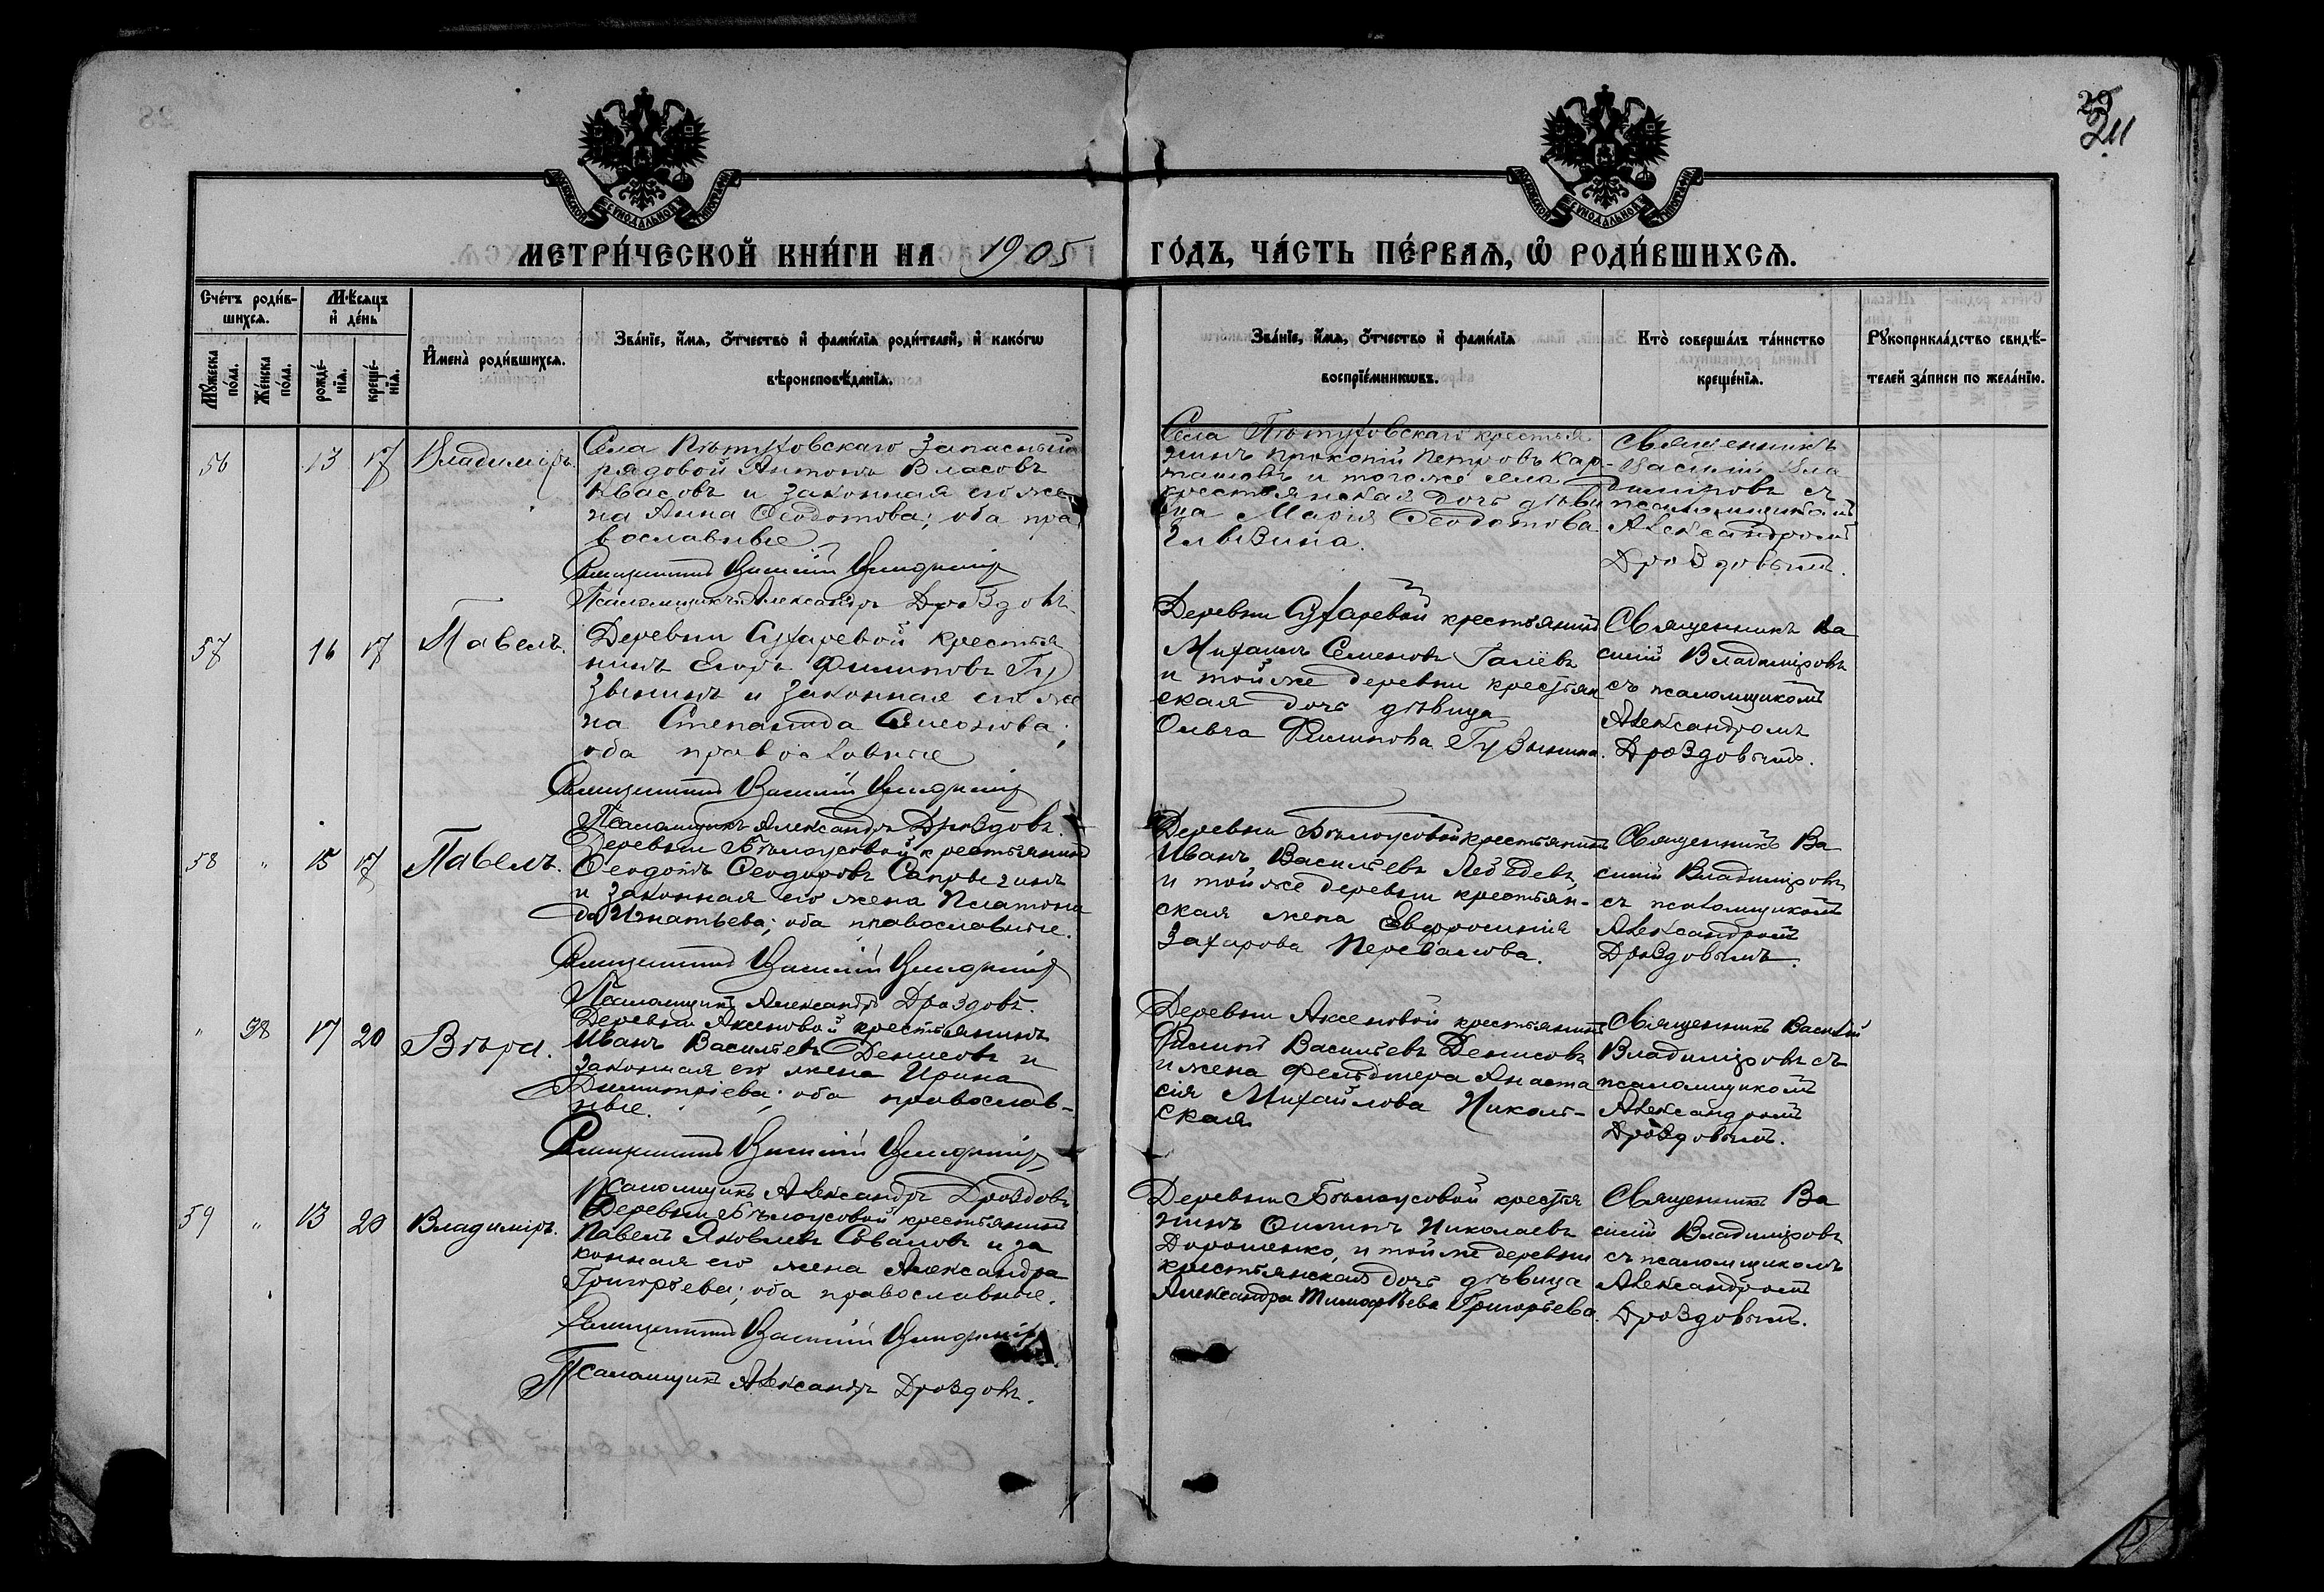 29
211
МОСКОВСКОЙ СѴНОДАЛЬНОЙ ТИПОГРАФІИ
МОСКОВСКОЙ СѴНОДАЛЬНОЙ ТИПОГРАФІИ
МЕТРИ́ЧЕСКОЙ КНИ́ГИ НА 1905
ГО́ДЪ, ЧА́СТЬ ПЕ́РВАѦ, Ѡ҆ РОДИ́ВШИХСѦ.
Сче́тъ роди́в-
шихсѧ.
Мꙋжеска по́ла.
Же́нска по́ла.
Мѣ́сѧцъ
и҆ де́нь
рожде́-
нїѧ.
креще́-
нїѧ.
И҆мена̀ роди́вшихсѧ.
Зва́нїе, и҆́мѧ, ѻ҆́тчество и҆ фами́лїѧ роди́телей, и҆ како́гѡ
вѣроисповѣ́данїѧ.
Зва́нїе, и҆́мѧ, ѻ҆́тчество и҆ фами́лїѧ
воспрїе́мникѡвъ.
Кто̀ соверша́лъ та́инство
креще́нїѧ.
Рꙋкоприкла́дство свидѣ́-
телей за́писи по жела́нїю.
56 13 17 Владиміръ.
Села Пѣтуховскаго запасный
рядовой Антонъ Власовъ
Квасовъ и законная его же
на Анна Ѳеодотова; оба пра
вославные
Священникъ Василій Владиміровъ
Псаломщикъ Александръ Дроздовъ.
Села Пѣтуховскаго крестья
нинъ Прокопій Петровъ Кар-
ташовъ и тогоже села
крестьянская дочь дѣви
ца Марія Ѳеодотова
Священникъ
Василій Вла
диміровъ съ
псаломщикомъ
Александромъ
Дроздовымъ.
57 16 17 Павелъ.
Деревни Сухаревой крестья
нинъ Егоръ Филиповъ Гу
зынинъ и законная его же
на Степанида Семенова;
оба православные
Священникъ Василій Владиміровъ
Псаломщикъ Александръ Дроздовъ.
Деревни Сухаревой крестьянинъ
Михаилъ Семеновъ Галіевъ
и тойже деревни крестьян
ская дочь дѣвица
Ольга Филипова Гузынина.
Священникъ Ва
силій Владиміровъ
съ псаломщикомъ
Александромъ
Дроздовымъ.
58 " 15 17 Павелъ.
Деревни Бѣлоусовой крестьянинъ
Ѳеодотъ Ѳеодоровъ Сапрыгинъ
и законная его жена Платони
да Игнатьева; оба православные.
Священникъ Василій Владиміровъ
Псаломщикъ Александръ Дроздовъ.
Деревни Бѣлоусовой крестьянинъ
Иванъ Васильевъ Лебедевъ
и тойже деревни крестьян-
ская жена Евфросинія
Захарова Перевалова.
Священникъ Ва
силій Владиміровъ
съ псаломщикомъ
Александромъ
Дроздовымъ.
" 38 17 20 Вѣра.
Деревни Аксеновой крестьянинъ
Иванъ Васильевъ Денисовъ и
законная его жена Ирина
Димитріева; оба православ-
ные.
Священникъ Василій Владиміровъ
Псаломщикъ Александръ Дроздовъ
Деревни Аксеновой крестьянинъ
Филипъ Васильевъ Денисовъ
и жена фельдшера Анаста
сія Михайлова Николь-
ская.
Священникъ Василій
Владиміровъ съ
псаломщикомъ
Александромъ
Дроздовымъ.
59 " 13 20 Владиміръ.
Деревни Бѣлоусовой крестьянинъ
Павелъ Яковлевъ Соваловъ и за
конная его жена Александра
Григорьева; оба православные.
Священникъ Василій Владиміровъ
Псаломщикъ Александръ Дроздовъ.
Деревни Бѣлоусовой крестья
нинъ Филипъ Николаевъ
Дорошенко, и тойже деревни
крестьянская дочь дѣвица
Александра Тимофѣева Григорьева.
Священникъ Ва
силій Владиміровъ
съ псаломщикомъ
Александромъ
Дроздовымъ.